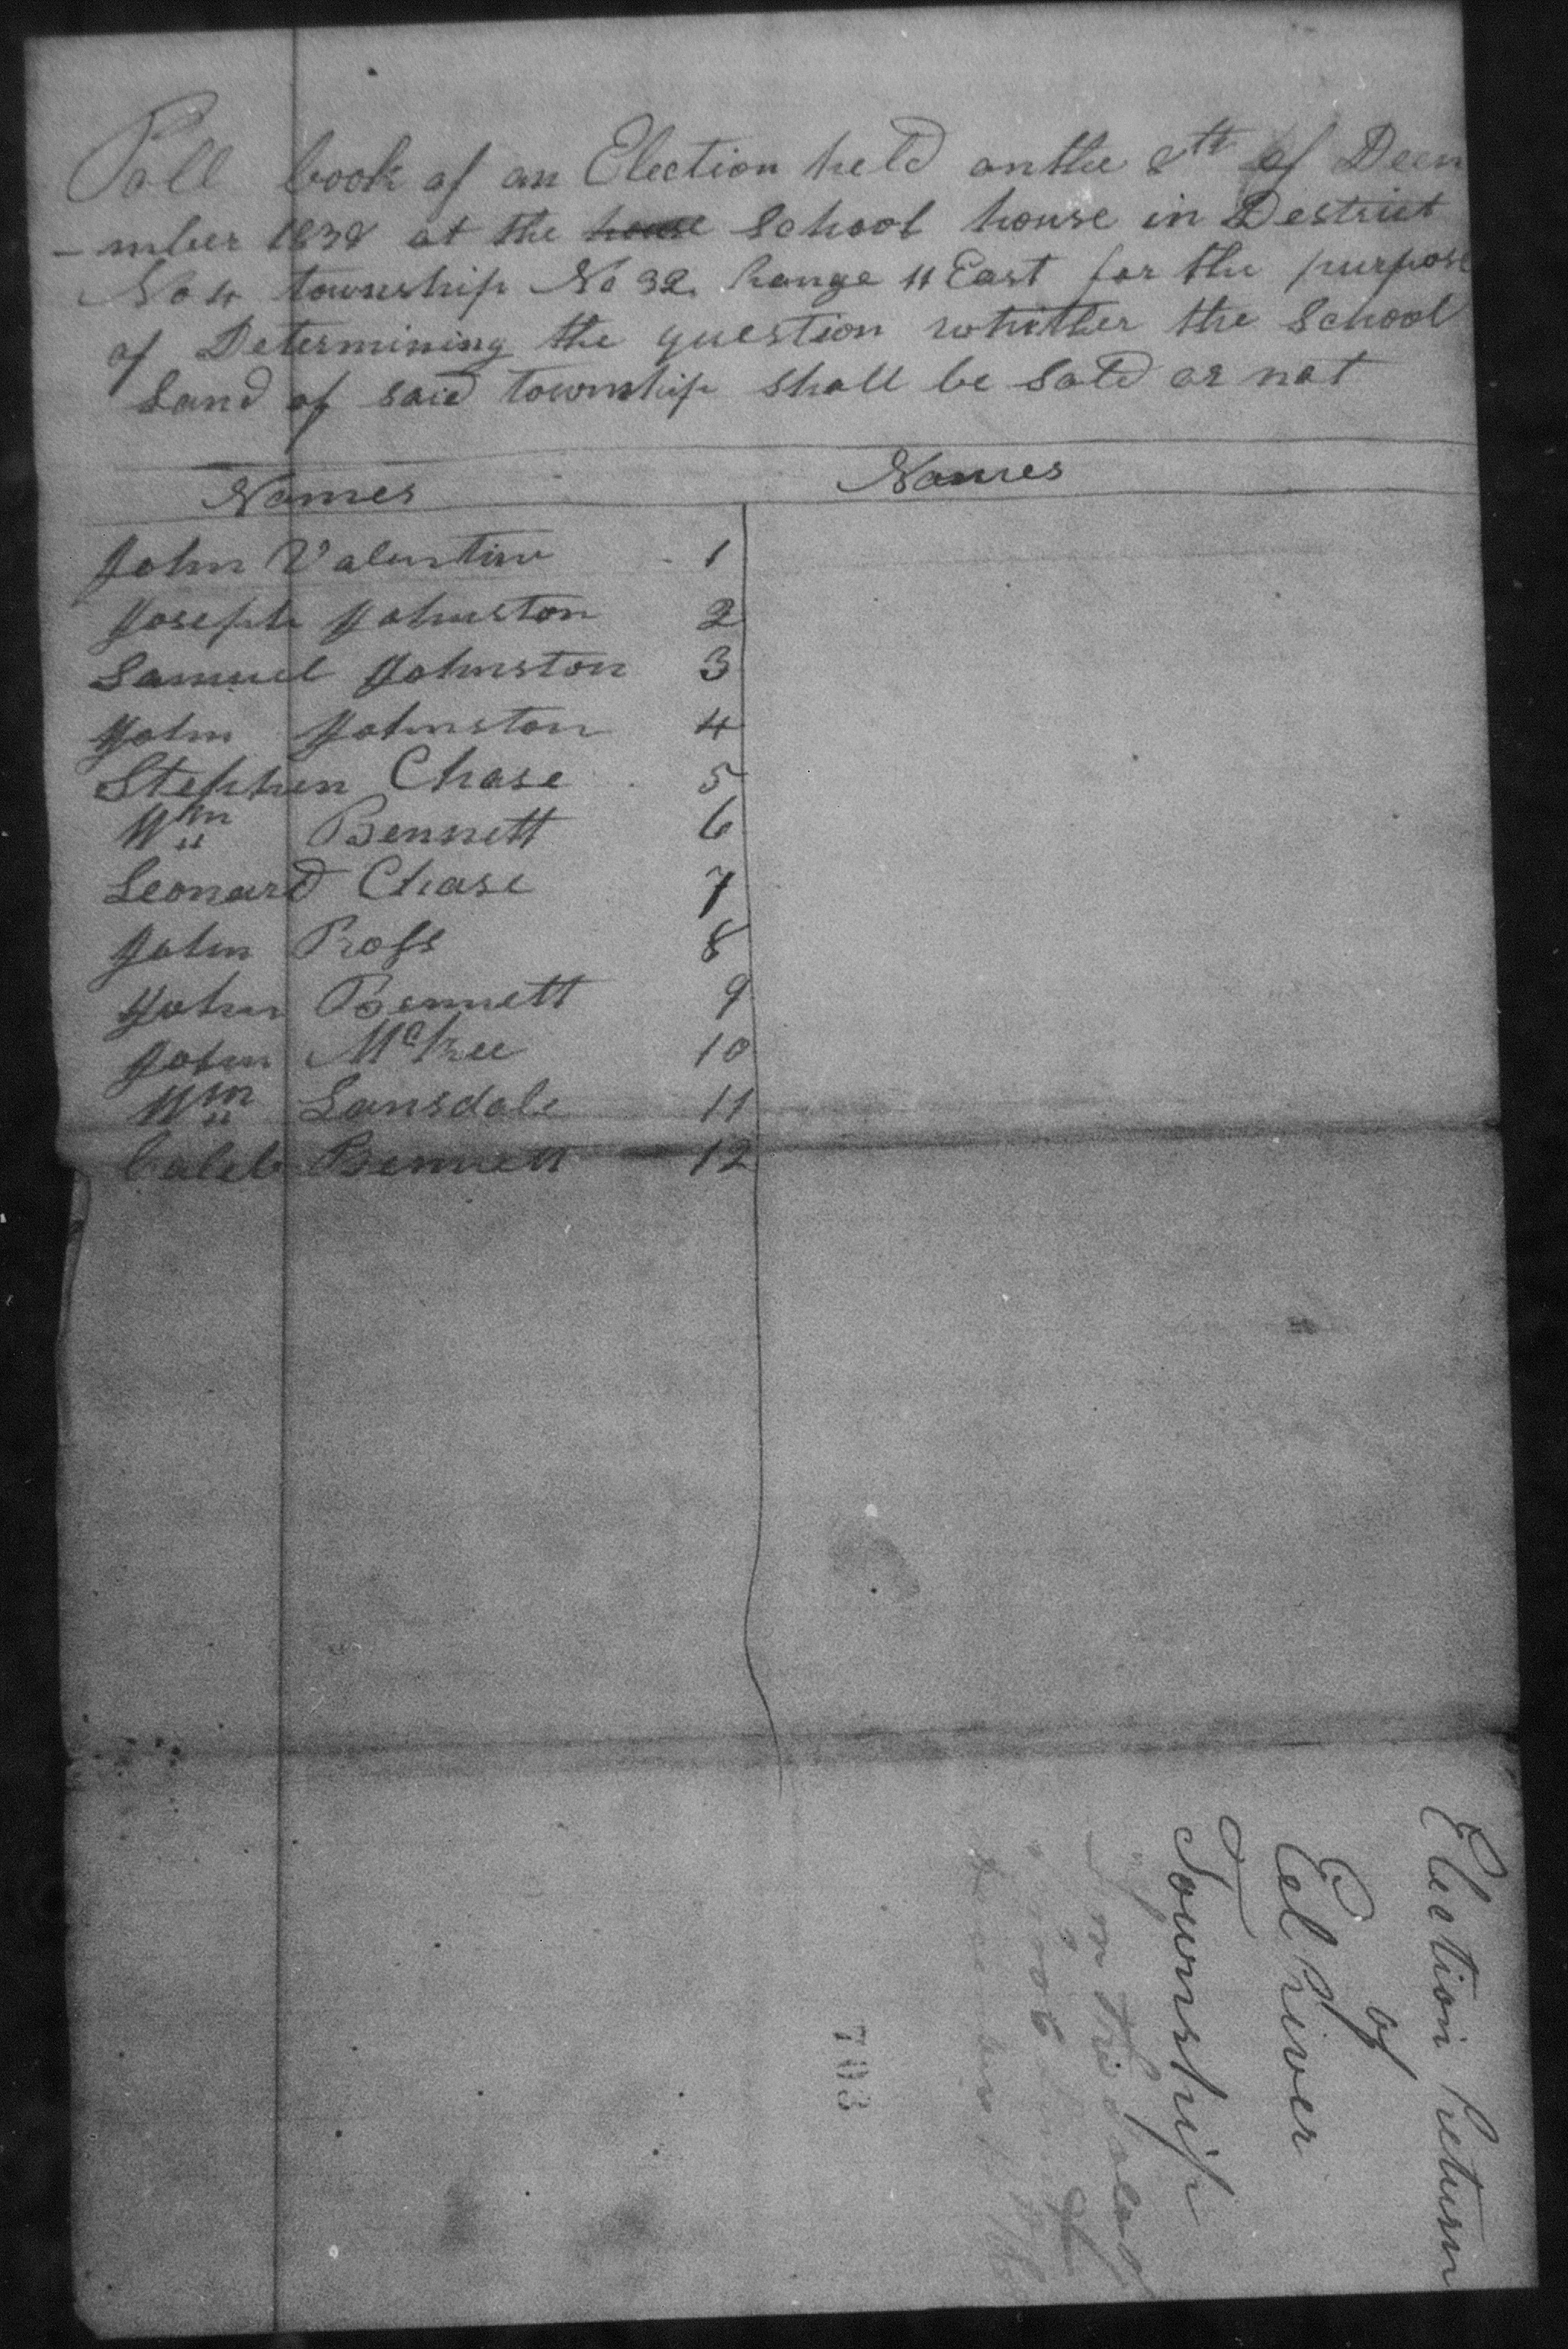 Poll book of an Election held on the 8th of Decm
- mber 1838 at the house School house in Destrict
No 4 township No 32 Range 11 East for the purpose
of Determining the question whither the School
Land of said township shall be Sold or not
Names Names
John Valentine 1
Joseph Johnston 2
Samuel Johnston 3
John Johnston 4
Stephen Chase 5
Wm Bennett 6
Leonard Chase 7
John Ross 8
John Bennett 9
John McKee 10
Wm Lansdale 11
Caleb Bennett 12
Election Return
of
Eel River
Township
703